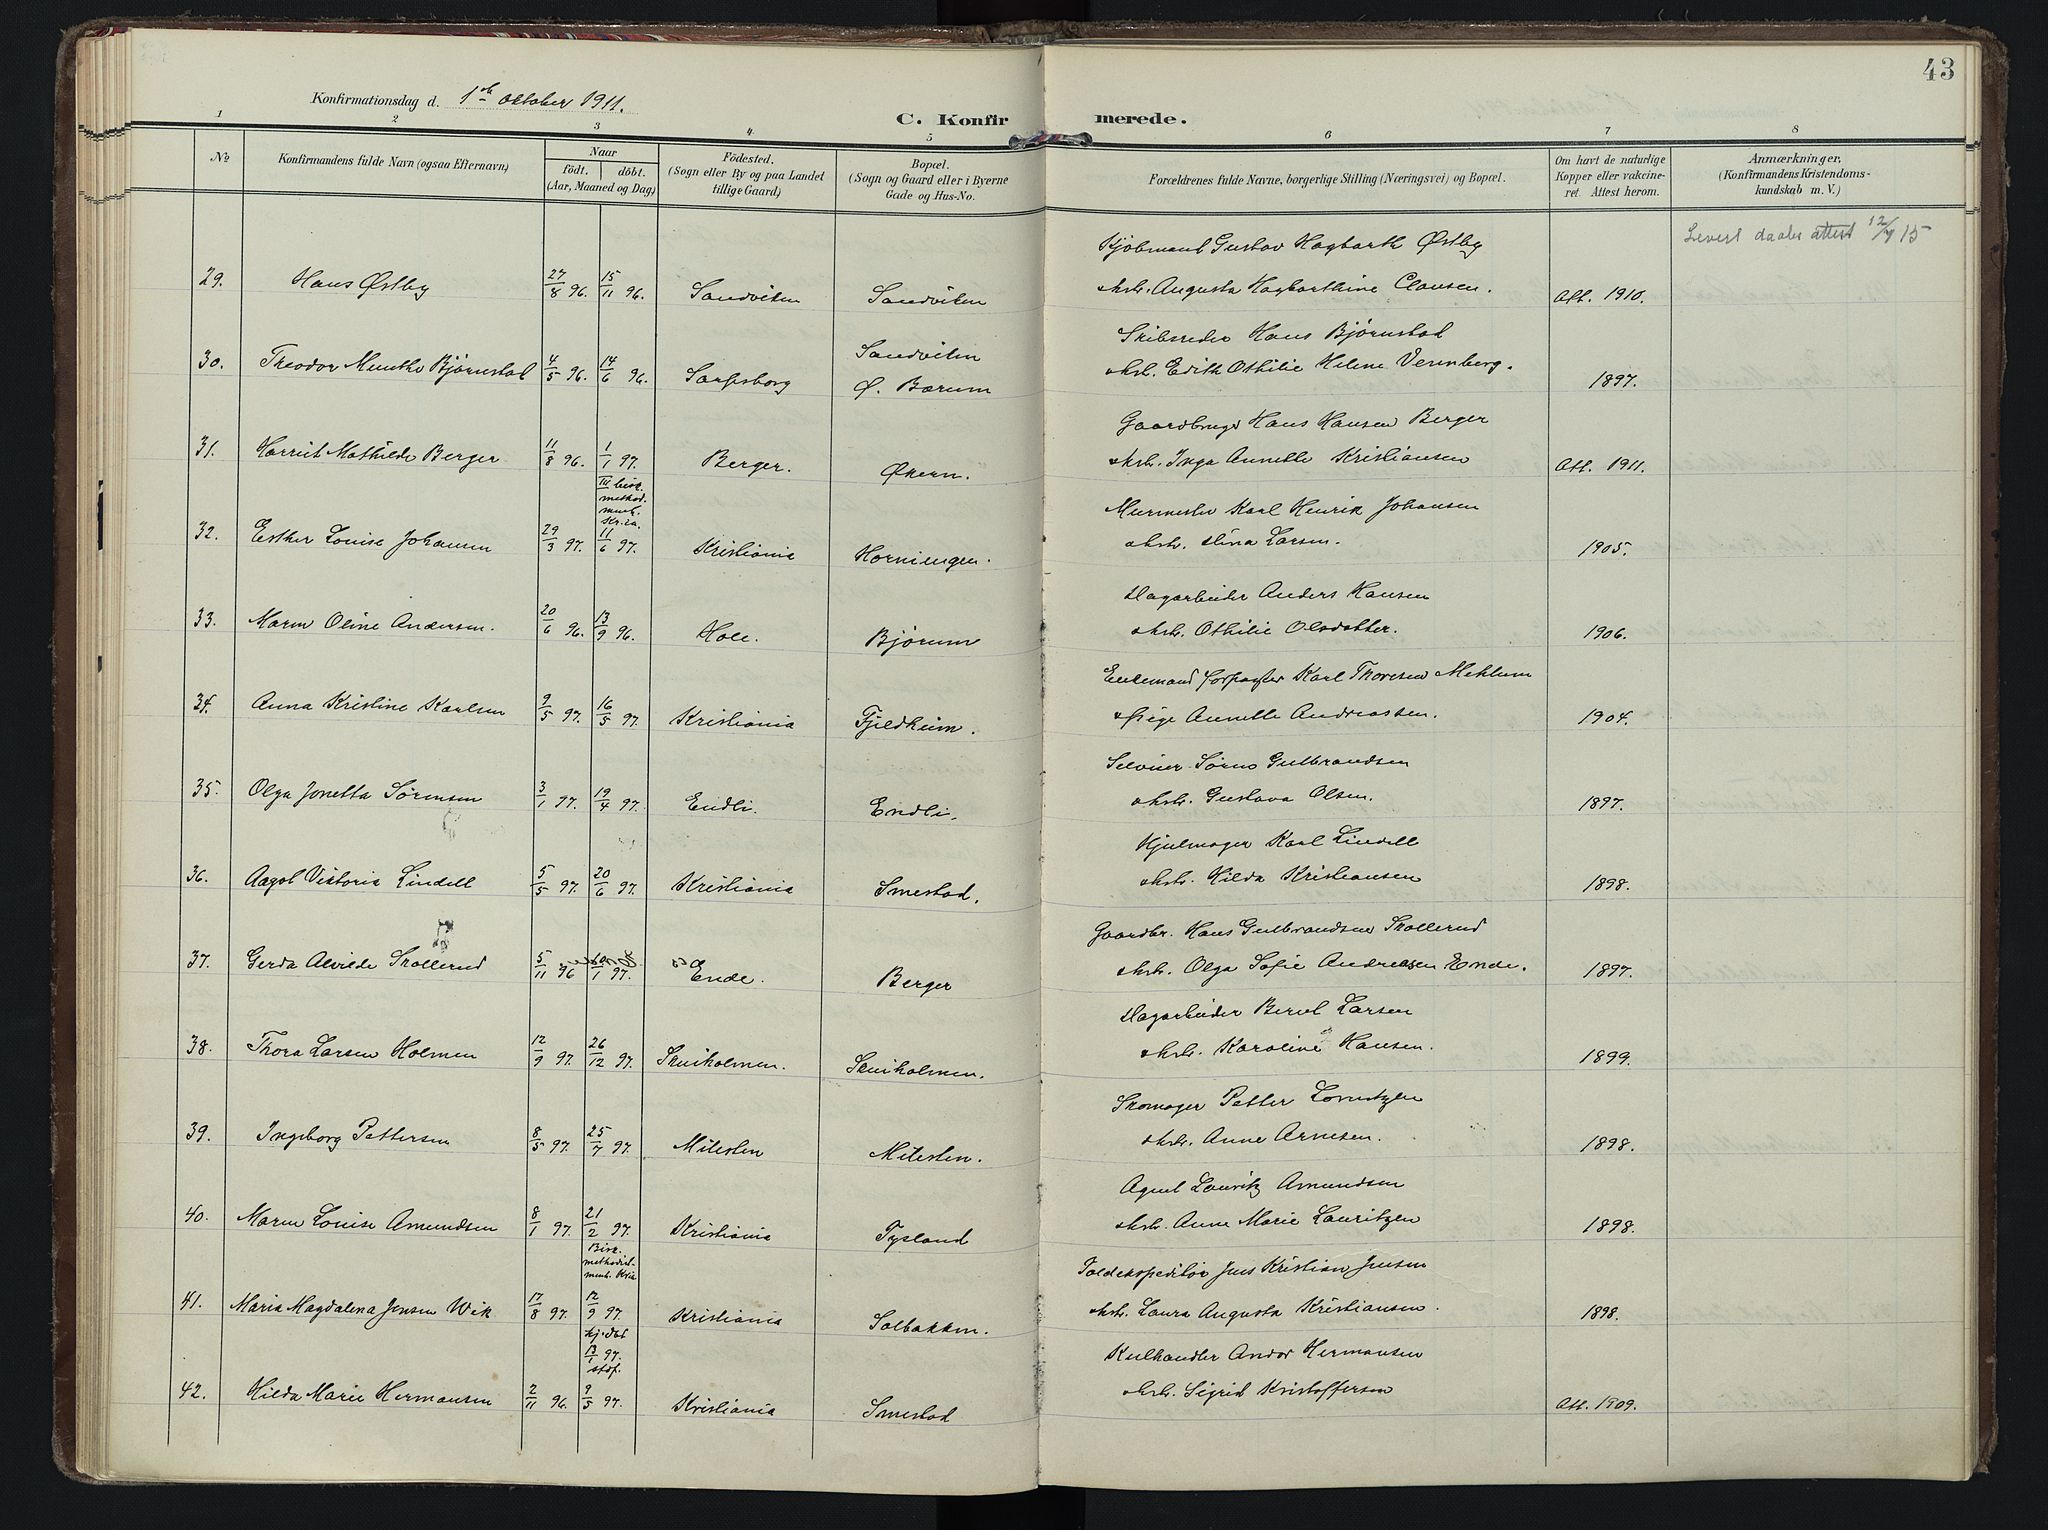 43
Konfirmationsdag d. 1ste oktober 1911.
C. Konfirmerede.
1 2 3 4. 5 6 7 8
No
Konfirmandens fulde Navn (ogsaa Efternavn)
Naar
födt. döbt.
(Aar, Maaned og Dag)
Födested.
(Sogn eller By og paa Landet
tillige Gaard)
Bopæl.
(Sogn og Gaard eller i Byerne
Gade og Hus-No.
Forældrenes fulde Navne, borgerlige Stilling (Næringsvei) og Bopæl.
Om havt de naturlige
Kopper eller vakcine-
ret. Attest herom.
Anmærkninger.
(Konfirmandens Kristendoms-
kundskab m. V.)
Kjøbmand Gustav Hagbarth Østby
attest 12/4 15
29. Hans Østby 27/8 96. 15/11 96. Sandviken Sandviken Augusta Hagbarthine Clausen. Att. 1910.
Skibsreder Hans Bjørnstad
Sandviken
30. Theodor Munthe Bjørnstad 4/5 96. 14/6 96. Sarpsborg Ø. Bærum Edith Othilie Helene Verenberg. 1897.
Gaardbruger Hans Hansen Berger
31. Harriet Mathilde Berger 11/8 96. 1/1 97. Berger. Økern. Inga Annette Kristiansen Att. 1911.
method.
menh.
Kr.ia.
Murmester Karl Henrik Johansen
32. Esther Louise Johansen 29/3 97. 11/6 97. Kristiania Horniengen. Larsen. 1905.
Dagarbeider Anders Hansen
33. Maren Oline Andersen. 20/6 96. 13/9 96. Hole. Bjørum Othilie Olsdatter. 1906.
Enkemand forpagter Karl Thoresen Mehlum
34. Anna Kristine Karlsen 9/5 97. 16/5 97. Kristiania Fjeldheim. Pige Annette Andreassen. 1904.
Selveier Sørens Gulbrandsen
35. Olga Jonetta Sørensen 3/1 97. 19/4 97. Endli. Endli. Gustava Olsen. 1897.
Hjulmager Karl Lindell
36. Aagot Viktoria Lindell 5/5 97. 20/6 97. Kristiania Smestad. Hilda Kristiansen 1898.
Gaardbr. Hans Gulbrandsen Skollerud
37. Gerda Alvilde Skollerud 5/11 96 /1 97. Ende. Berger Olga Sofie Andreasen Ende. 1897.
Dagarbeider Bernt Larsen
38. Thora Larsen Holmen 12/9 97. 26/12 97. Skuiholmen. Skuiholmen. Karoline Hansen. 1899.
Skomager Petter Lorentzen
39. Ingeborg Pettersen 8/5 97. 25/7 97. Milesten Milesten. Anne Arnesen. 1898.
Agent Lauritz Amundsen
40. Maren Louise Amundsen 8/1 97. 21/2 97. Kristiania Tysland Anne Marie Lauritzen 1898.
Bisk.
methodist-
menh. Kria
Toldekspeditør Jens Kristian Jensen
41. Maria Magdalena Jensen Wik 17/8 97. 12/9 97. Kristiania Solbakken. Laura Augusta Kristiansen. 1898.
hj.døbt
13/1 97.
stdf.
Kulhandler Andor Hermansen
42. Hilda Marie Hermansen 2/11 96. 9/5 97. Kristiania Smestad Sigrid Kristoffersen Att. 1909.